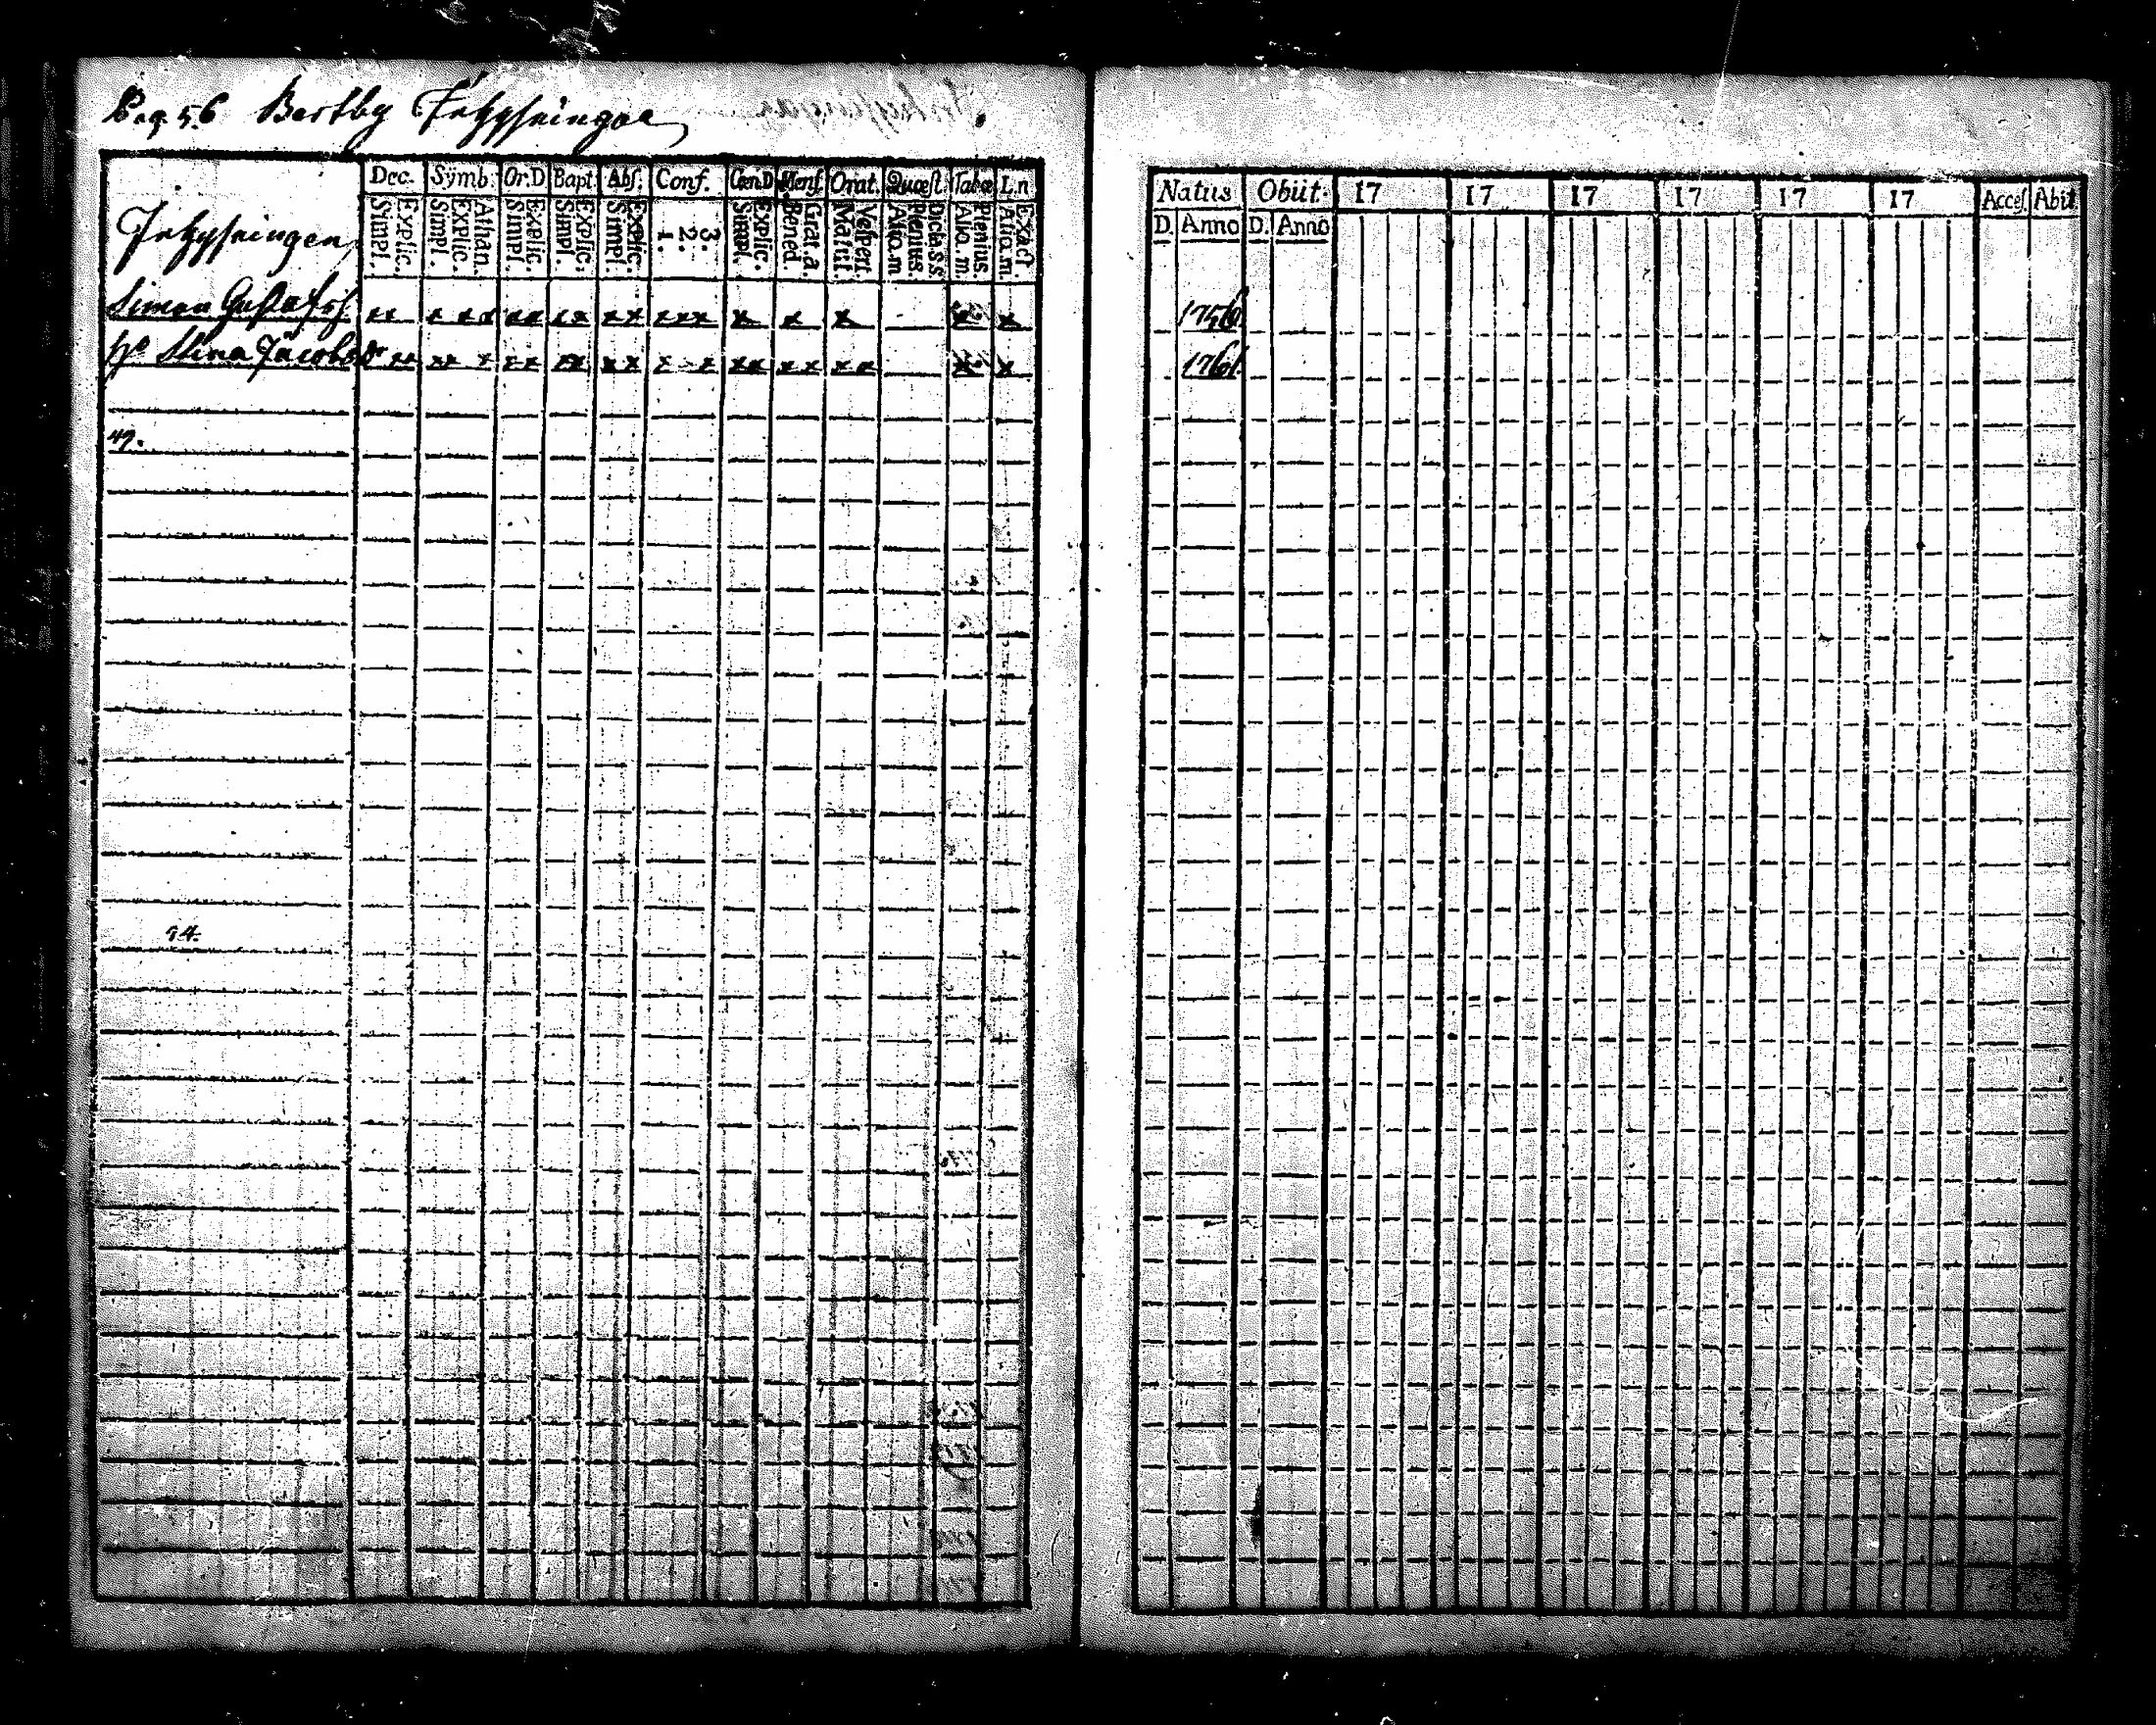 Pag. 56 Bertby
Dec. Symb. Or.D Bapt Abs. Conf. Cœn.D Mens. Orat. Quæst. Tabœ L.n
Simpl. Explic. Simpl. Explic. Athan. Simpl. Explic. Simpl. Explic. Simpl. Explic. 1. 2. 3. Simpl. Explic. Bened. Grat.a. Matut. Vesperi. Alio.m Plenius. Dicta.s.s Alio.m. Plenius. Atio.m. Exact.
Simon Gustafss.
hu Stina Jacobsdr
49.
94.
Natus Obiit. 17 17 17 17 17 17 Acces. Abiit
D. Anno D. Anno
1756.
1761.